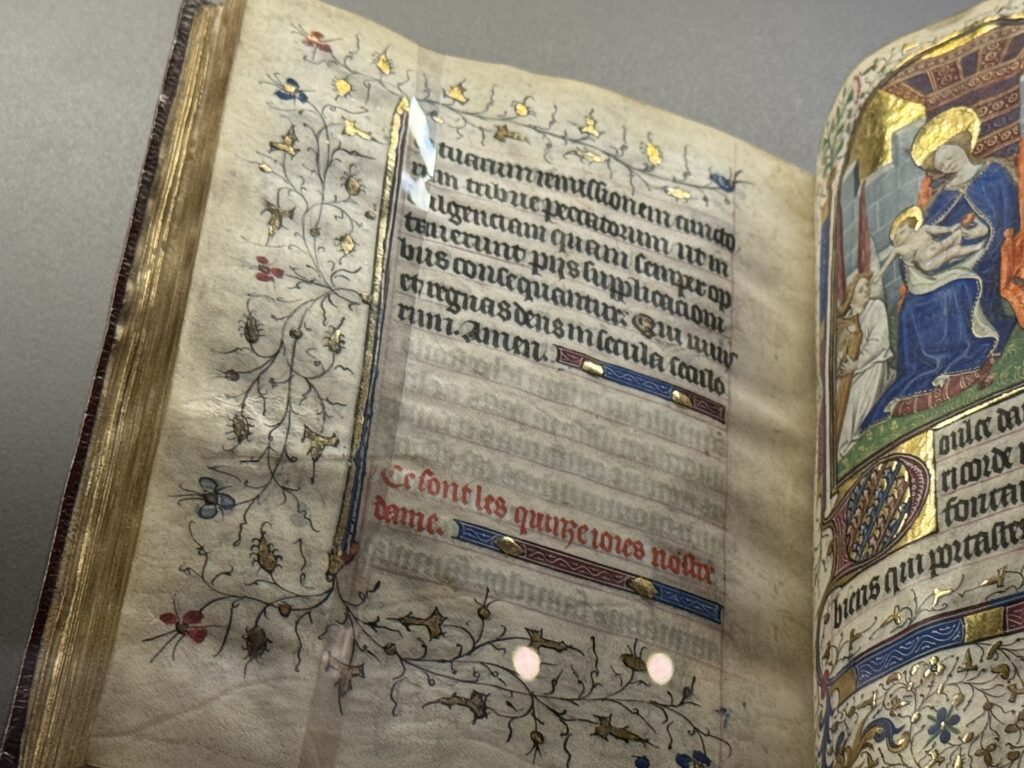 tuarum remissionem cuncto
rum tribue peccatorum ut in
dulgenciam quam semper op
tauerunt pijs supplicacioni
bus consequantur. Qui uiuis
et regnas deus in secula seculo
rum. Amen.
Ce sont les quinze ioies nostre
dame.
Doulce da
ricorde
fontai
biens qui portastes